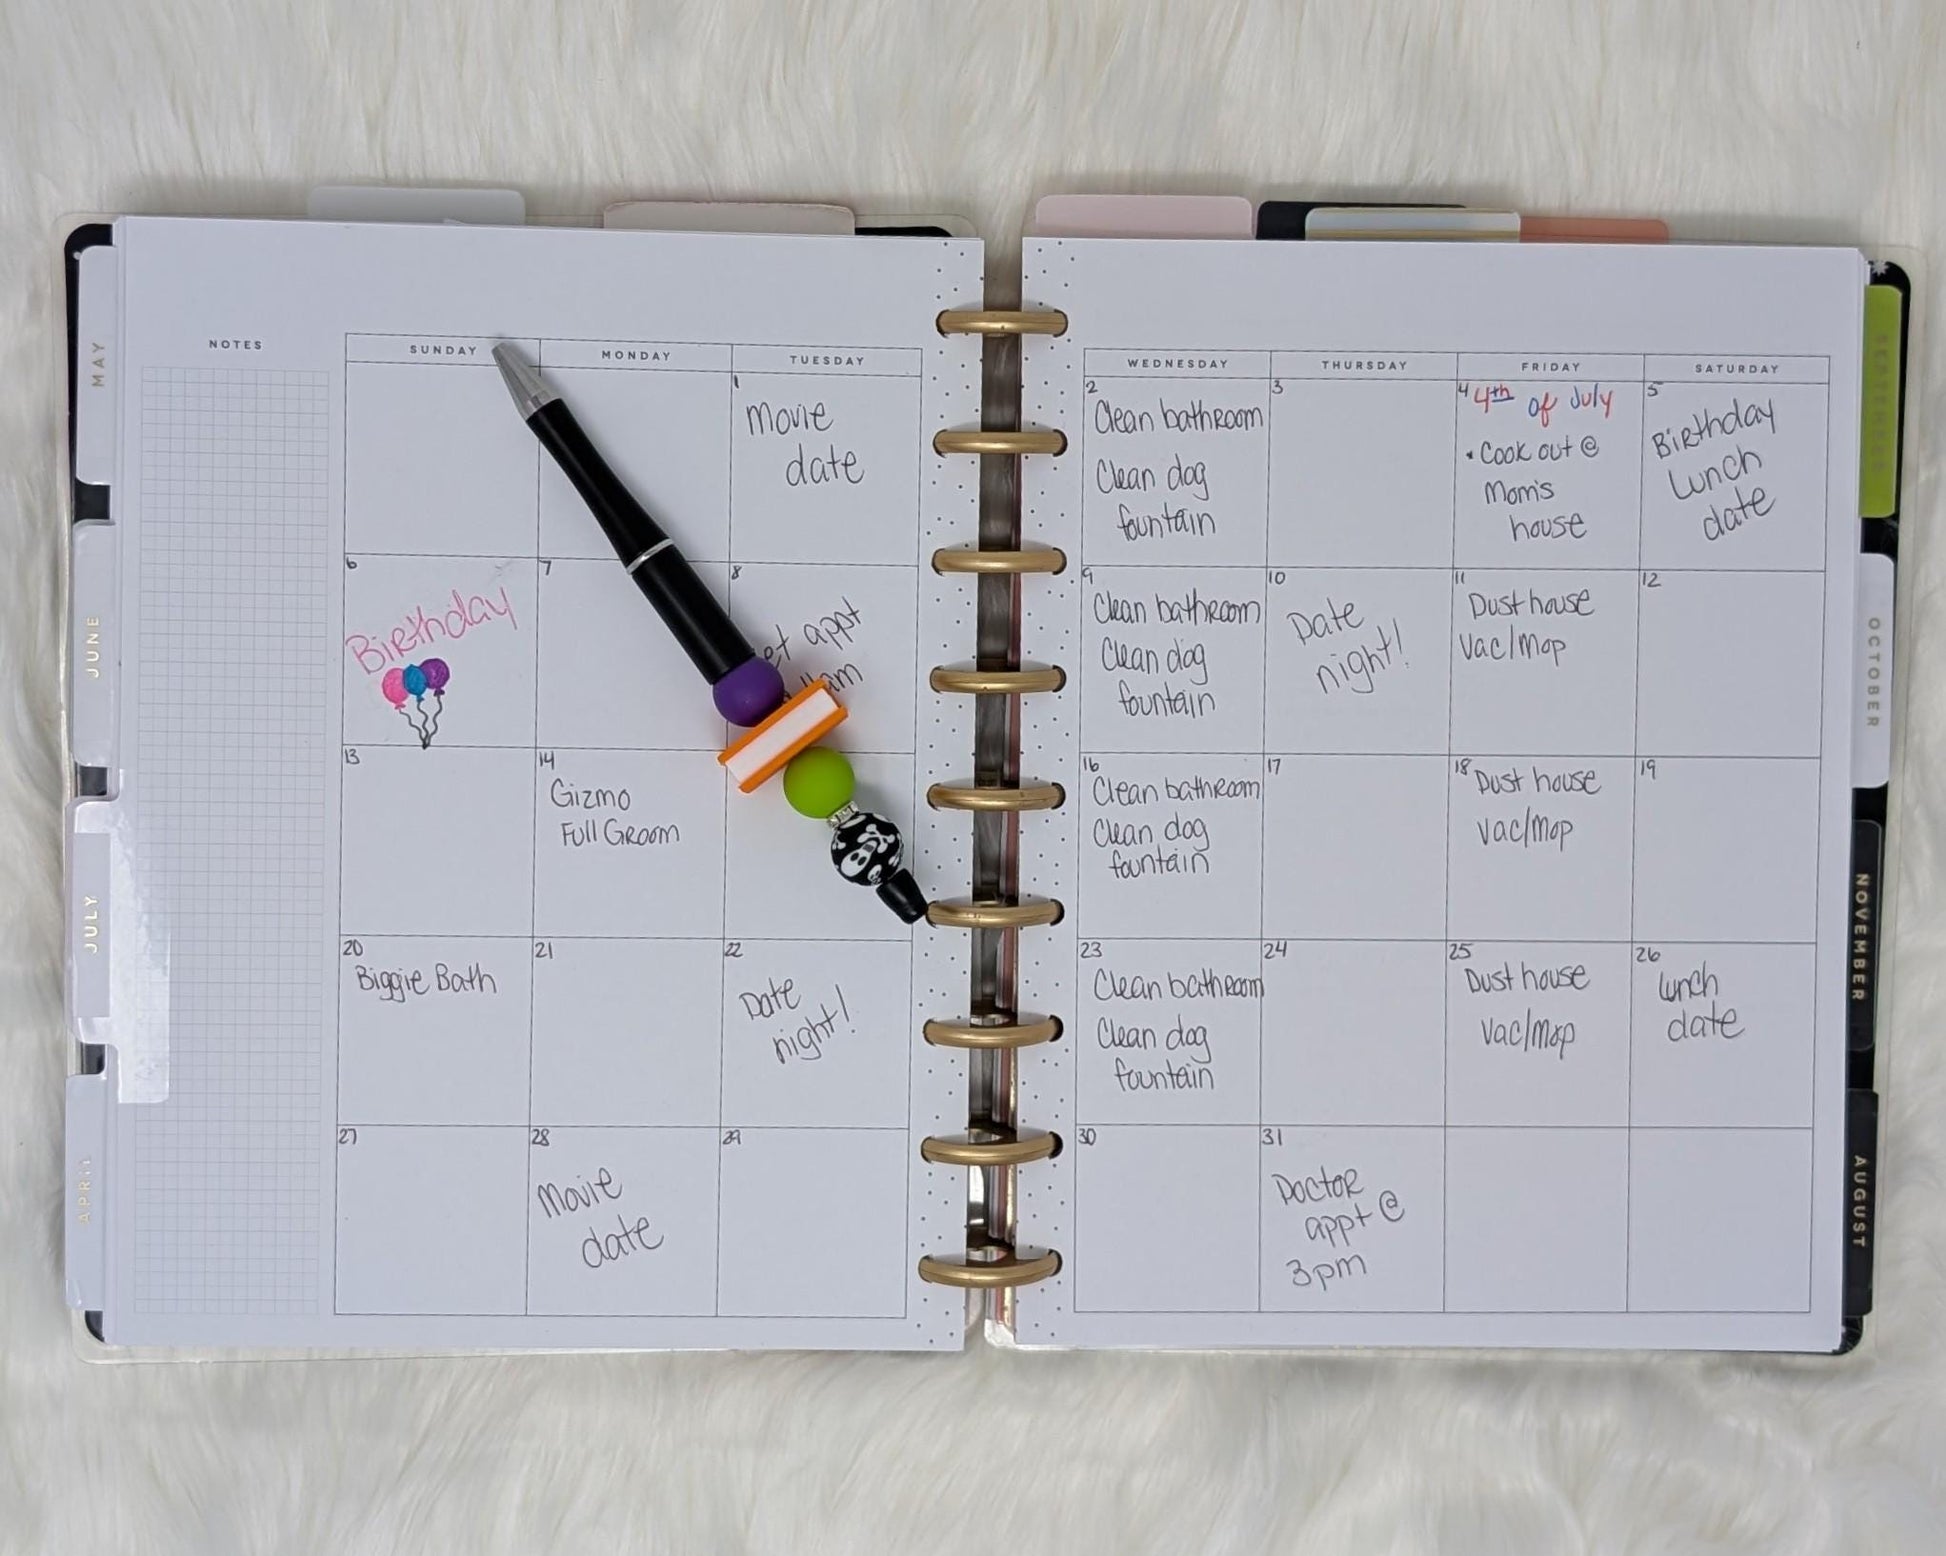 MAY
JUNE
JULY
APRIL
NOTES
SUNDAY
MONDAY
TUESDAY
WEDNESDAY
THURSDAY
FRIDAY
SATURDAY
1
Movie
date
2
Clean bathroom
Clean dog
fountain
3
4
4th of July
• Cook out @
Mom's
house
5
Birthday
Lunch
date
6
Birthday
7
8
appt
11am
9
Clean bathroom
Clean dog
fountain
10
Date
night!
11
Dust house
Vac/Mop
12
13
14
Gizmo
Full Groom
16
Clean bathroom
Clean dog
fountain
17
18
Dust house
Vac/Mop
19
20
Biggie Bath
21
22
Date
night!
23
Clean bathroom
Clean dog
fountain
24
25
Dust house
Vac/Mop
26
Lunch
date
27
28
Movie
date
29
30
31
Doctor
appt @
3pm
SEPTEMBER
OCTOBER
NOVEMBER
AUGUST